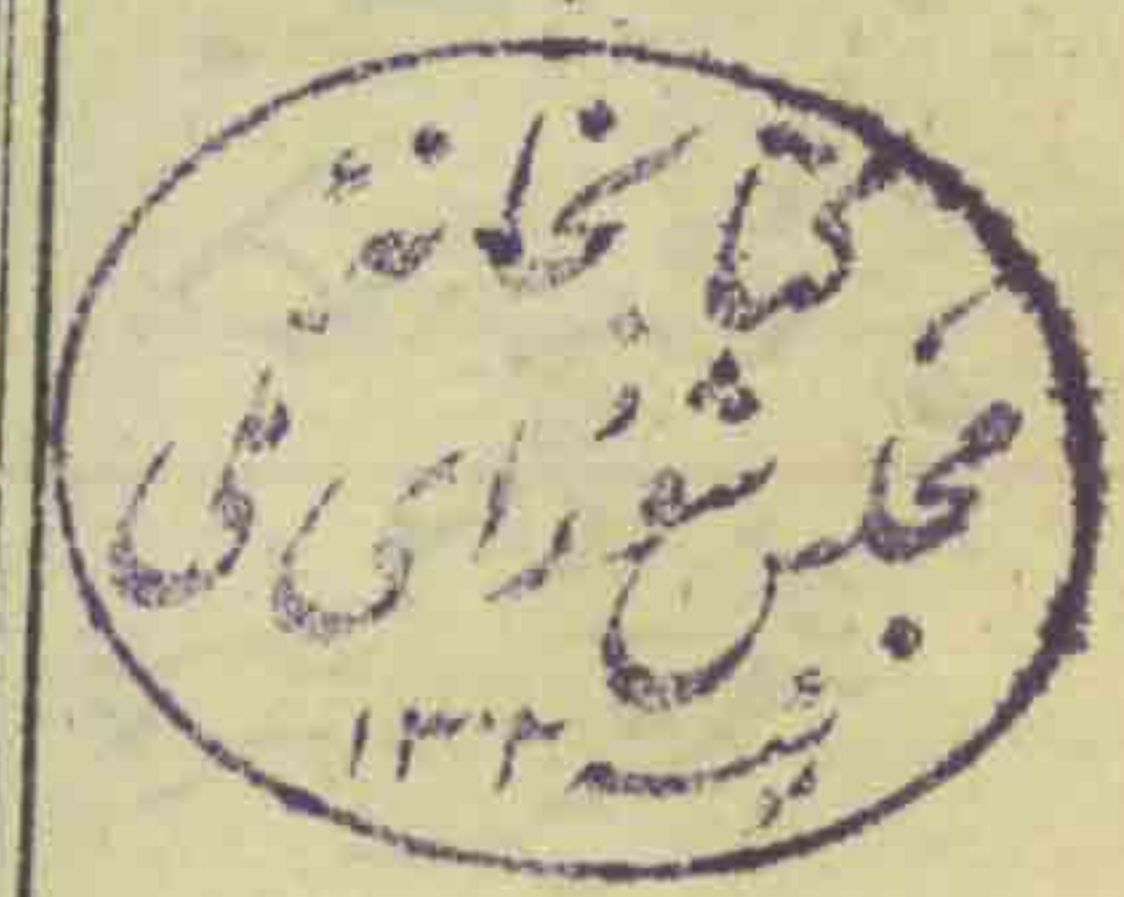 کتابخانه
مجلس شورای ملی
سنه ۱۳۰۲